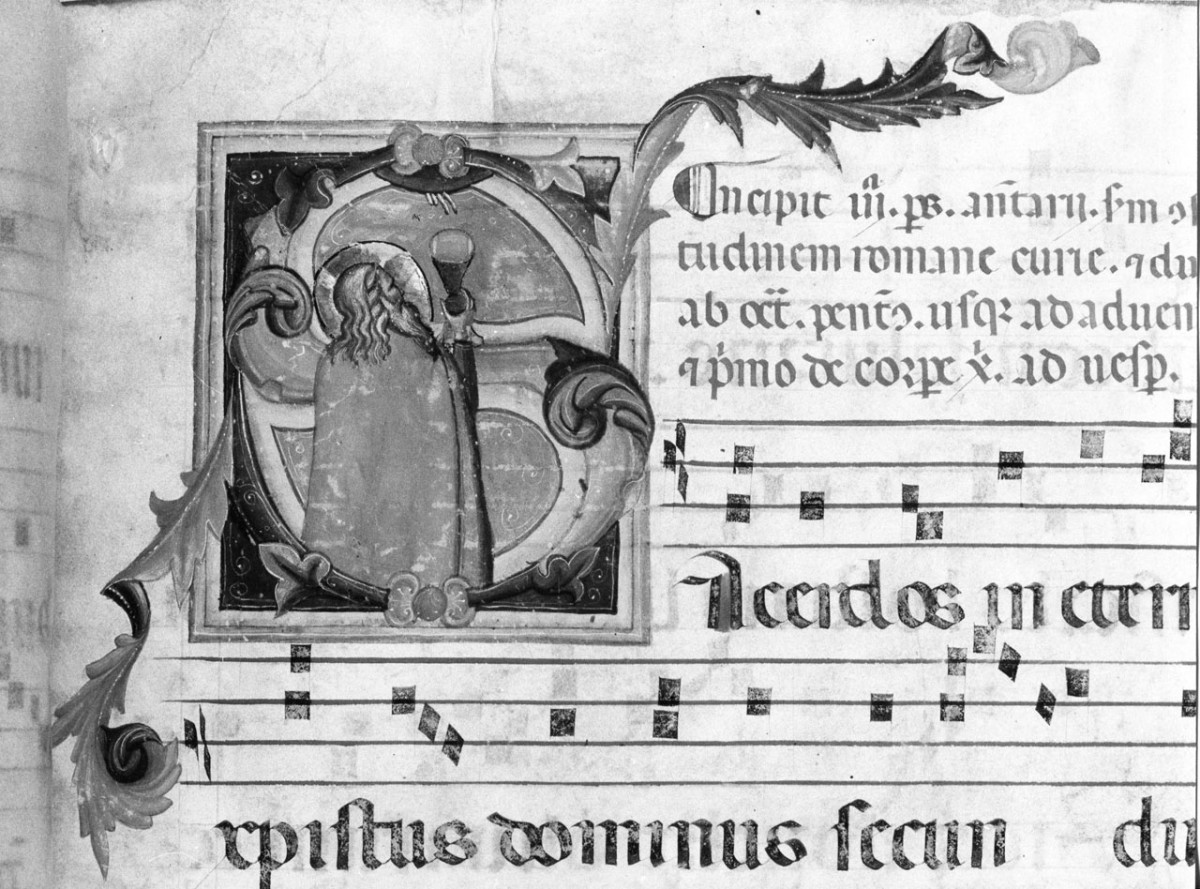 Incipit iij. ps. antarij. s'm ↄs
tudinem romane curie. ⁊ du
ab oct. pent. usq₂ ad aduen
⁊ p'mo de corpe x'. ad uesp.
Sacerdos in etern
xpistus dominus secun du